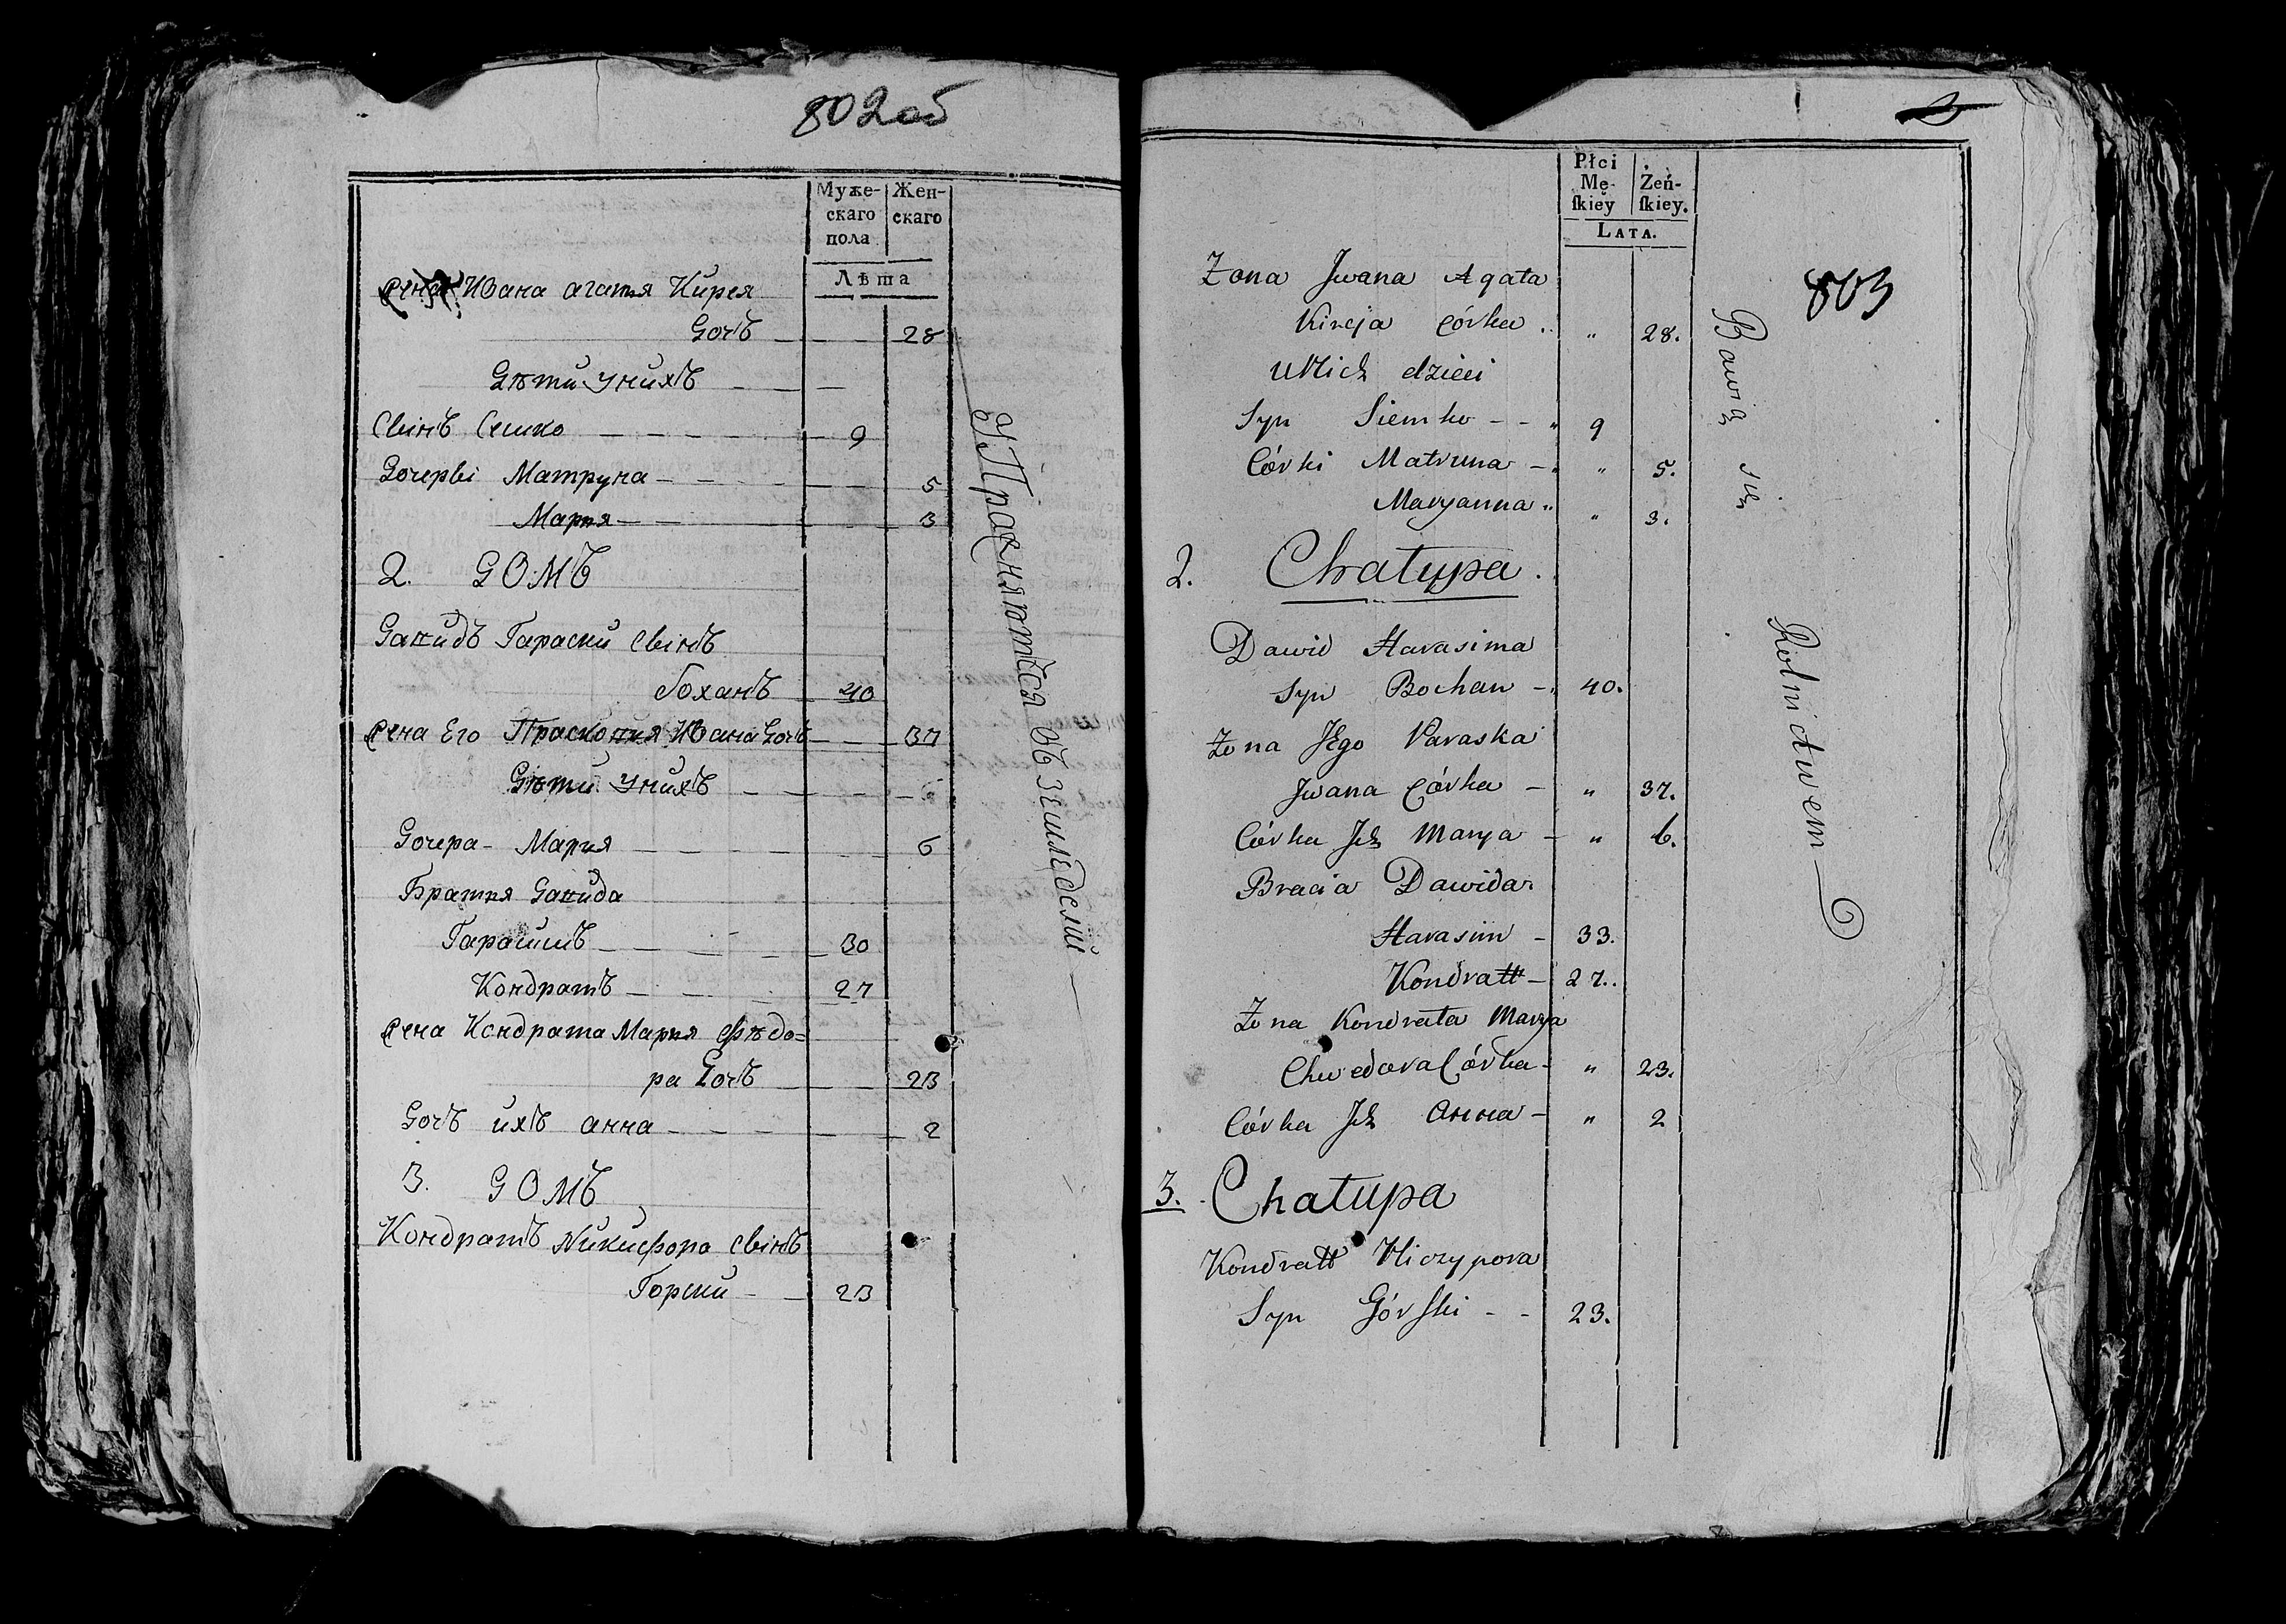 802об
Муже-
скаго
пола
Жен-
скаго
Лѣта
жена Ивана агатья Кирея
дочь 28
дѣти унихъ
Сынъ Семко 9
Дочеры Матруна 5
Марья 3
2. ДОМЪ
Давидъ Гараски сынъ
Боханъ 40
жена Его Прасковья Ивана дочь 37
дѣти унихъ
дочера Марья 6
Братья Давида
Гарасимъ 30
Кондратъ 27
жена Кондрата Марья Ѳѣдо=
ра дочь 23
дочь ихъ анна 2
3. ДОМЪ
Кондратъ Никифора сынъ
Горски 23
упражняются въ земледелии
803
Płci
Mę-
ſkiey
Zeń-
ſkiey.
LATA.
Zona Jwana Agata
Kireja Córka " 28.
U Nich dzieci
Syn Siemko 9
Córki Matruna " 5.
Maryanna " 3.
2. Chatupa
Dawid Harasima
Syn Bochan 40.
Zona Jego Paraska
Jwana Córka " 37.
Córka Jch Marya " 6.
Bracia Dawida
Harasim 33.
Kondratt 27.
Zona Kondrata Marya
Chwedora Córka " 23.
Córka Jch Анна " 2
3. Chatupa
Kondratt Niczypora
Syn Górſki 23.
Bawią się Rolnictwem